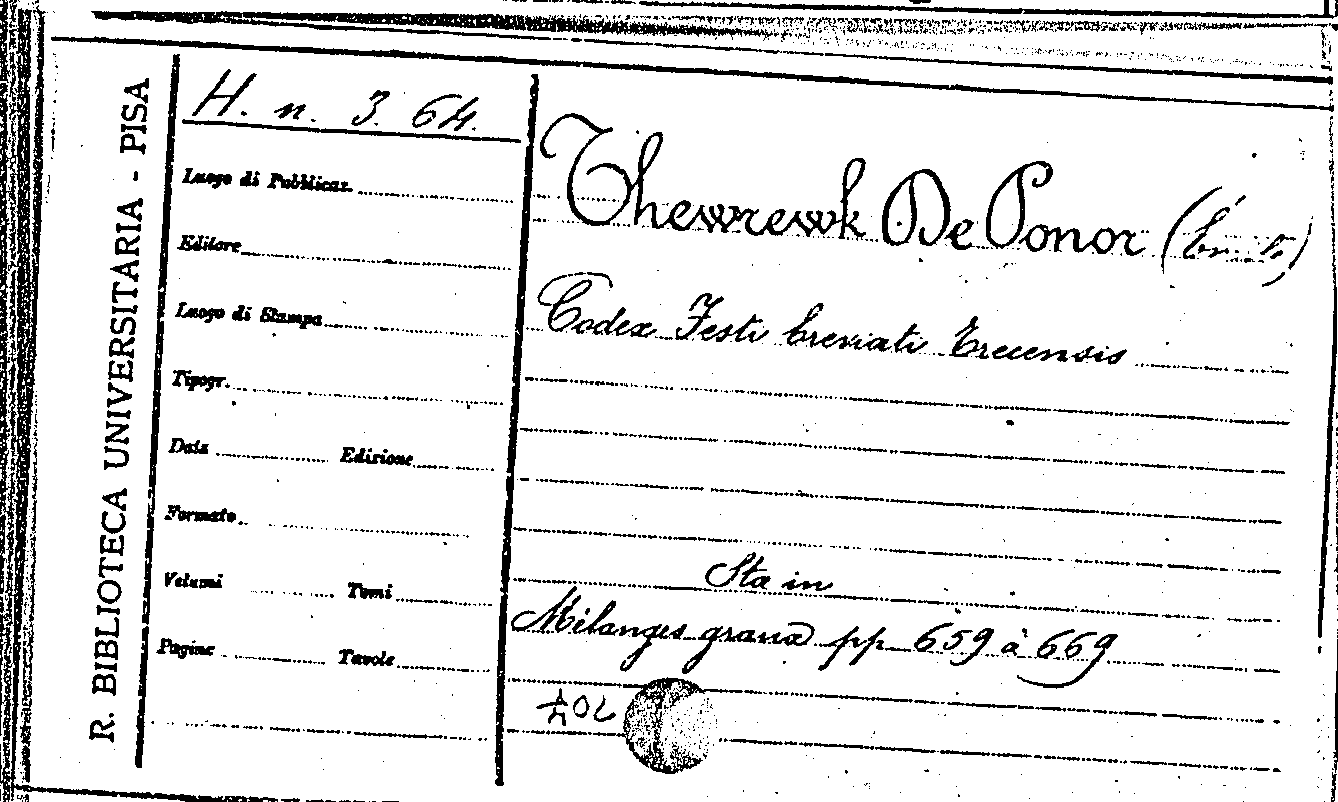 R. BIBLIOTECA UNIVERSITARIA - PISA
H. n. 3. 64.
Luogo di Pubblicaz.
Editore
Luogo di Stampa
Tipogr.
Data Edizione
Formato
Volumi Tomi
Pagine Tavole
Thewrewk De Ponor
Codex Festi breviati Trecensis
Sta in
Milanges graux pp. 659 à 669